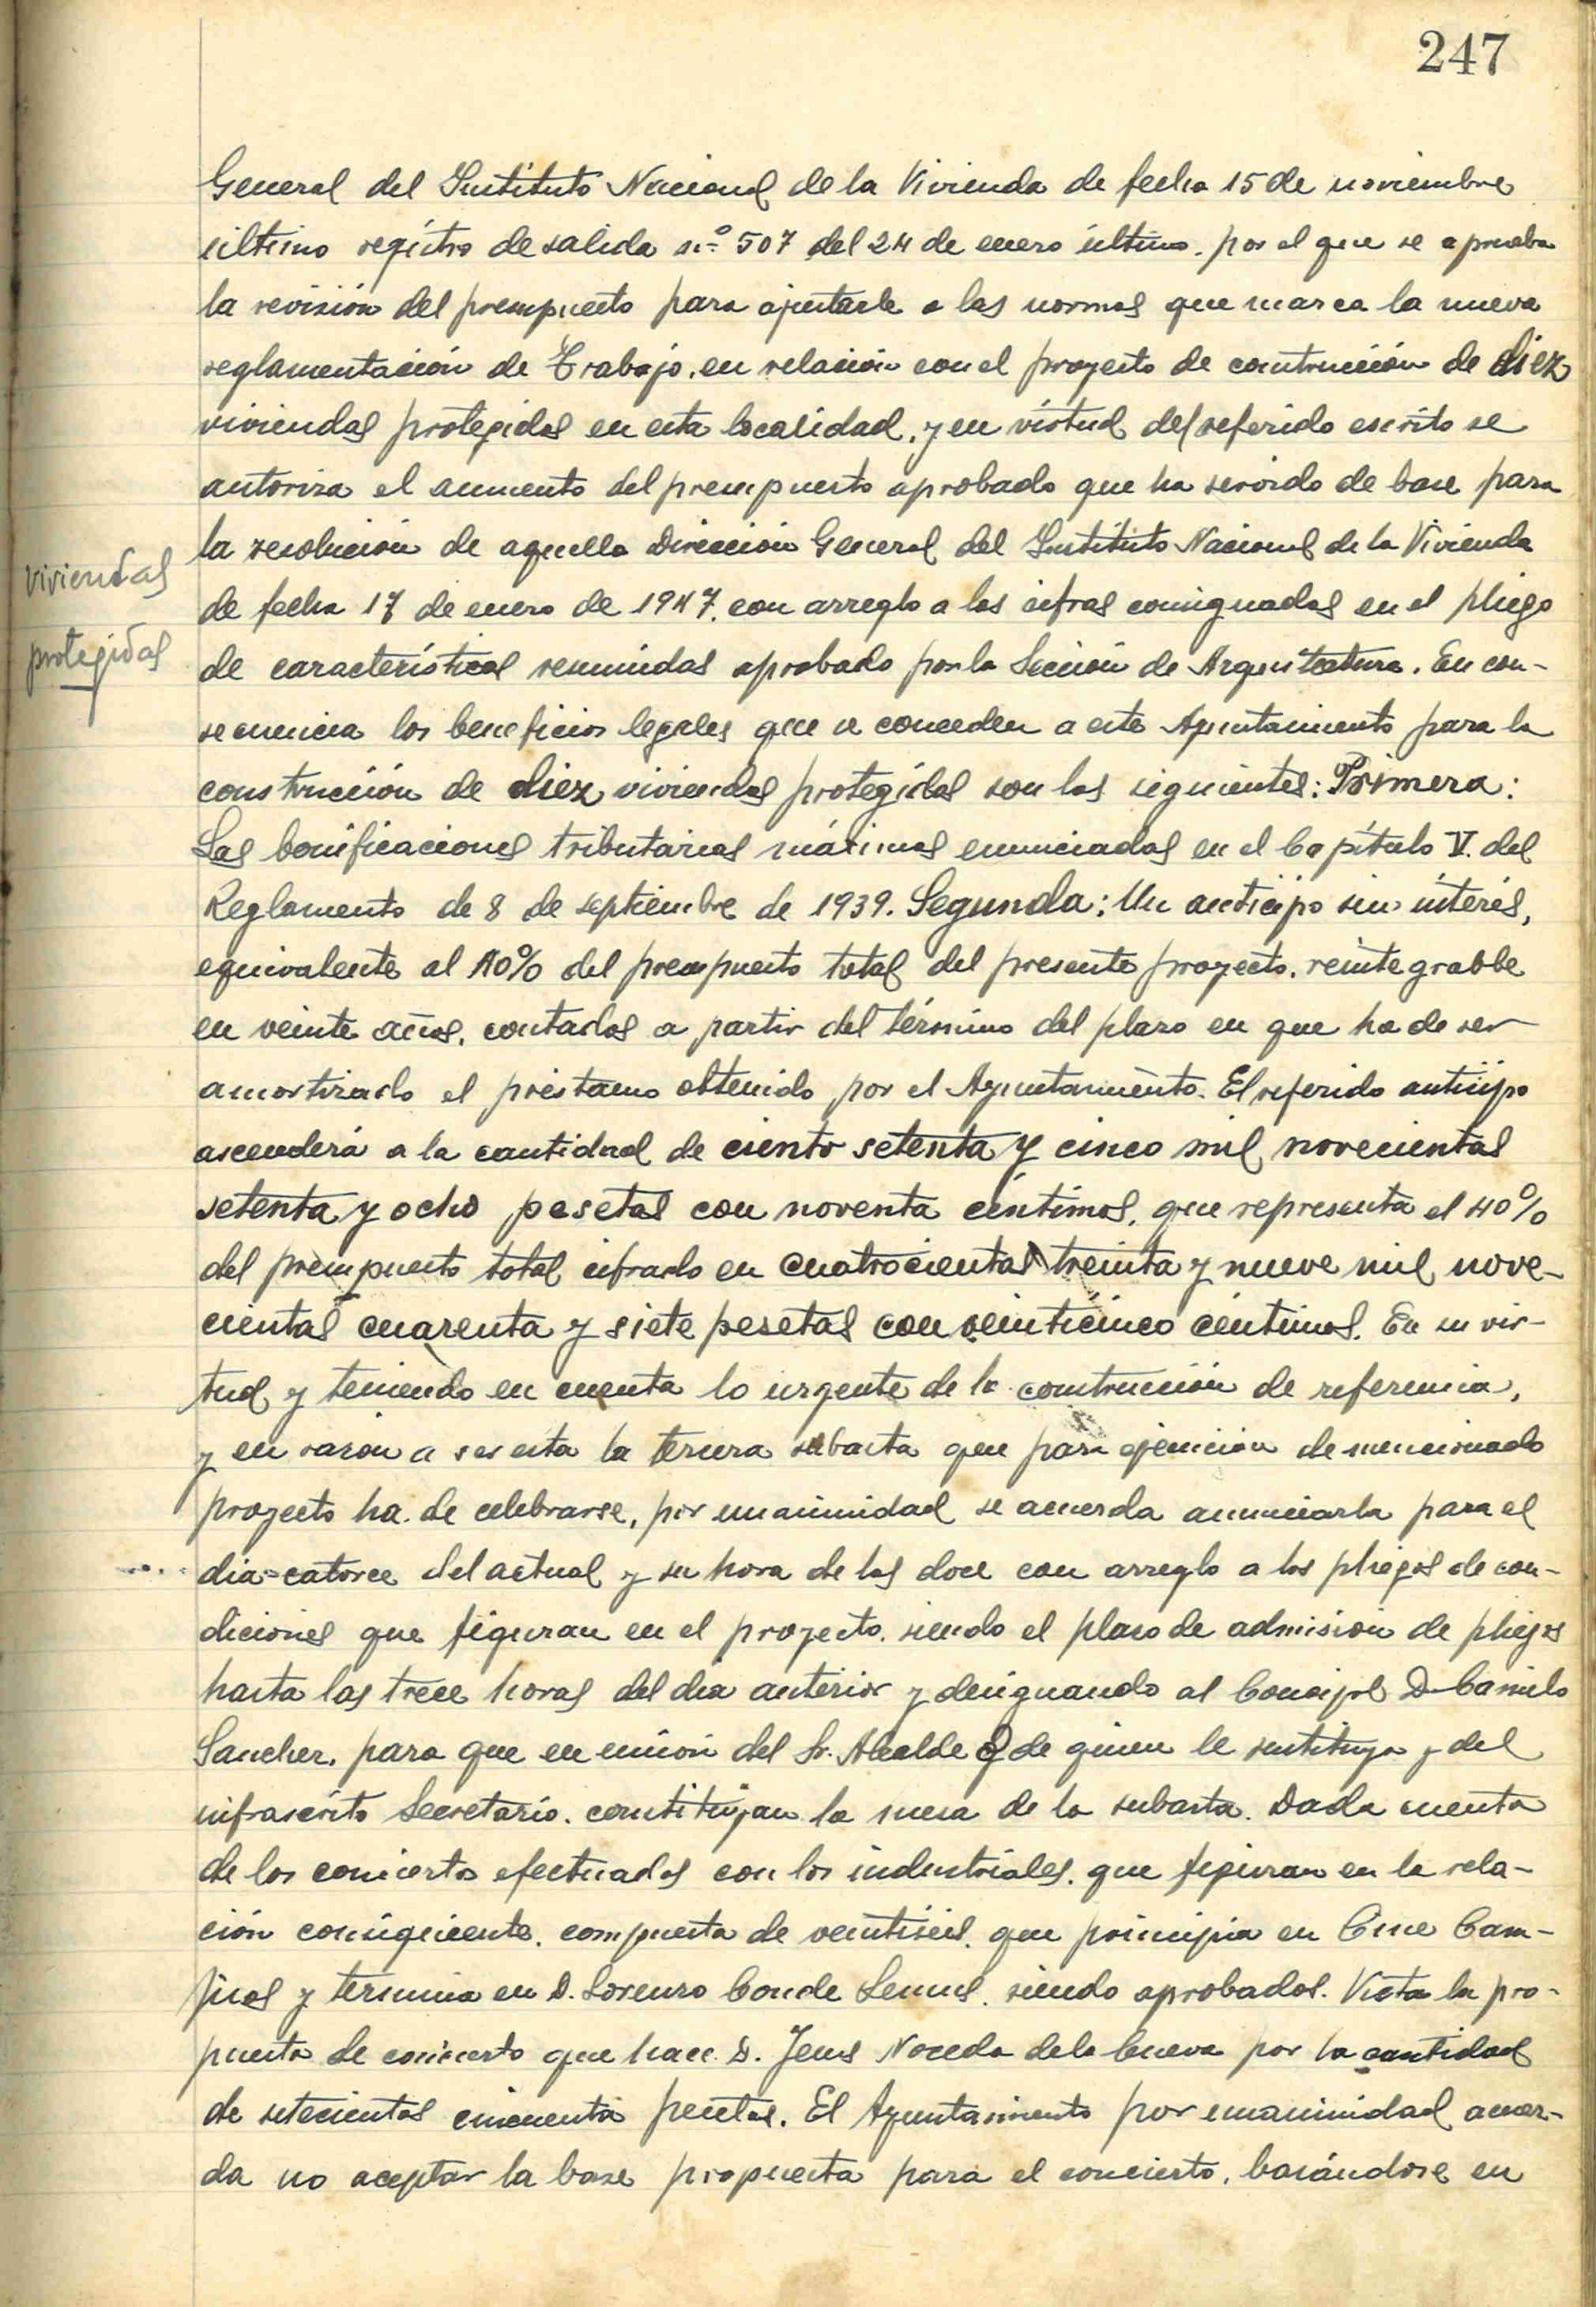 247
General del Instituto Nacional de la Vivienda de fecha 15 de noviembre
último registro de salida nº 507 del 24 de enero último. por el que se aprueba
la revisión del presupuesto para ajustarle a las normas que marca la nueva
reglamentación de Trabajo. en relación con el proyecto de construcción de diez
viviendas protegidas en esta localidad, y en virtud del referido escrito se
autoriza el aumento del presupuesto aprobado que ha servido de base para
la resolución de aquella Dirección General del Instituto Nacional de la Vivienda
viviendas
de fecha 17 de enero de 1947. con arreglo a las cifras consignadas en el pliego
protegidas
de características resumidas aprobado por la Sección de Arquitectura. En con-
secuencia los beneficios legales que se conceden a este Ayuntamiento para la
construcción de diez viviendas protegidas son las siguientes: Primera:
Las bonificaciones tributarias máximas enunciadas en el Capítulo V. del
Reglamento de 8 de septiembre de 1939. Segunda: Un anticipo sin interés,
equivalente al 40% del presupuesto total del presente proyecto. reintegrabbe
en veinte años, contados a partir del término del plazo en que ha de ser
amortizado el préstamo obtenido por el Ayuntamiento. El referido anticipo
ascenderá a la cantidad de ciento setenta y cinco mil novecientas
setenta y ocho pesetas con noventa céntimos, que representa el 40%
del presupuesto total cifrado en cuatrocientas treinta y nueve mil nove-
cientas cuarenta y siete pesetas con veinticinco céntimos. En su vir-
tud y teniendo en cuenta lo urgente de la construcción de referencia,
y en razón a ser esta la tercera subasta que para ejecución de mencionado
proyecto ha de celebrarse, por unanimidad se acuerda anunciarla para el
dia catorce del actual y su hora de las doce con arreglo a los pliegos de con-
diciones que figuran en el proyecto. siendo el plazo de admisión de pliegos
hasta las trece horas del día anterior y designando al Concejal D Camilo
Sanchez, para que en unión del Sr. Alcalde o de quien le sustituya y del
infrascrito Secretario. constituyan la mesa de la subasta. Dada cuenta
de los conciertos efectuados con los industriales. que figuran en la rela-
ción consiguiente. compuesta de veintiséis. que principia en Cine Cam-
pios y termina en D. Lorenzo Conde Lemus. siendo aprobados. Vista la pro-
puesta de concierto que hace D. Jesus Noceda dela Cueva por la cantidad
de setecientas cincuenta pesetas. El Ayuntamiento por unanimidad acuer-
da no aceptar la base propuesta para el concierto, basándose en